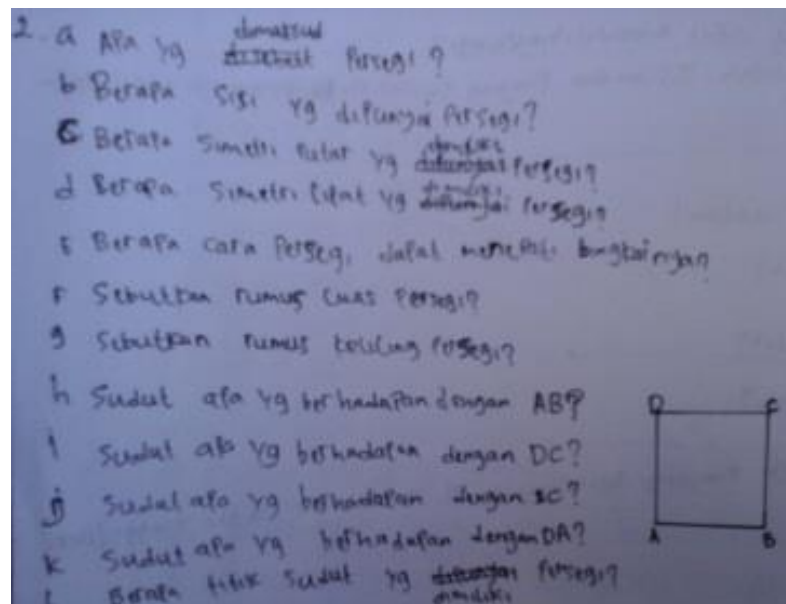 2. a APa yg dimaksud Persegi?
b Berapa sisi yg dipunyai Persegi?
c Berapa Simetri Putar yg dimiliki Persegi?
d Berapa Simetri lipat yg dimiliki Persegi?
e Berapa cara Persegi dapat menempati bingkainya?
F Sebutkan rumus Luas Persegi?
g Sebutkan rumus keliling Persegi?
h Sudut apa yg berhadapan dengan AB?
i Sudut apa yg berhadapan dengan DC?
j Sudut apa yg berhadapan dengan BC?
k Sudut apa yg berhadapan dengan DA?
l Berapa titik sudut yg dimiliki Persegi?
D C
A B